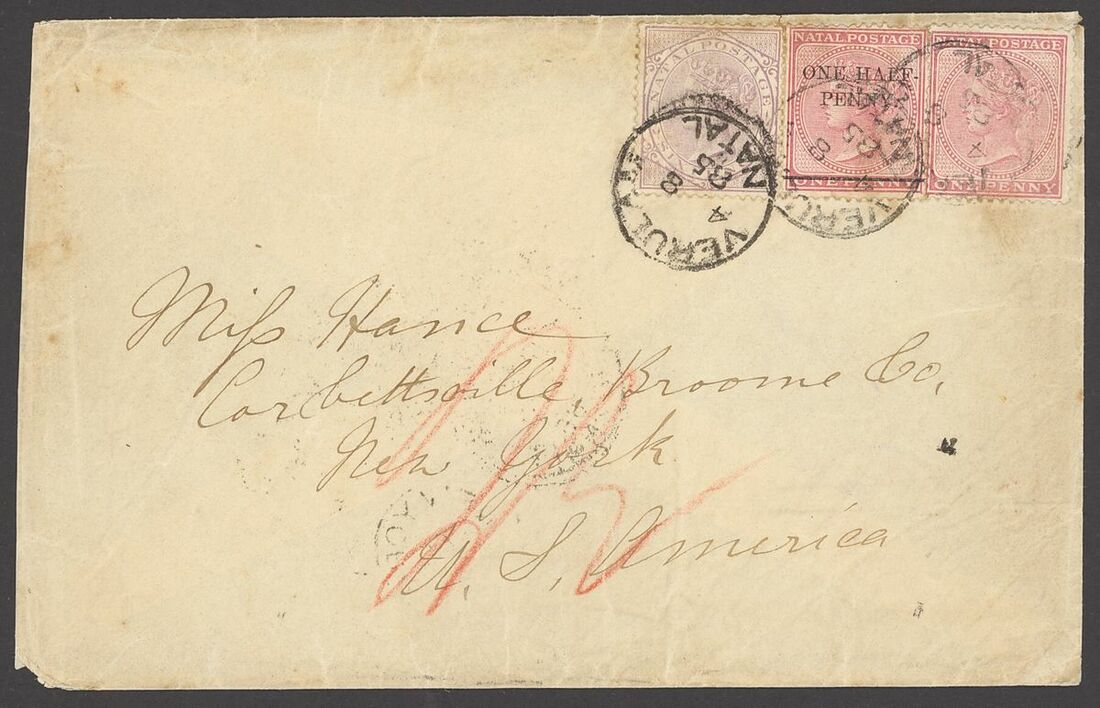 NATAL POSTAGE
SIX
NATAL POSTAGE
ONE HALF-
PENNY.
ONE PENNY
NATAL POSTAGE
ONE PENNY
VERULAM
NATAL
Miss Hance
Corbettsville, Broome Co,
New York
U. S. America